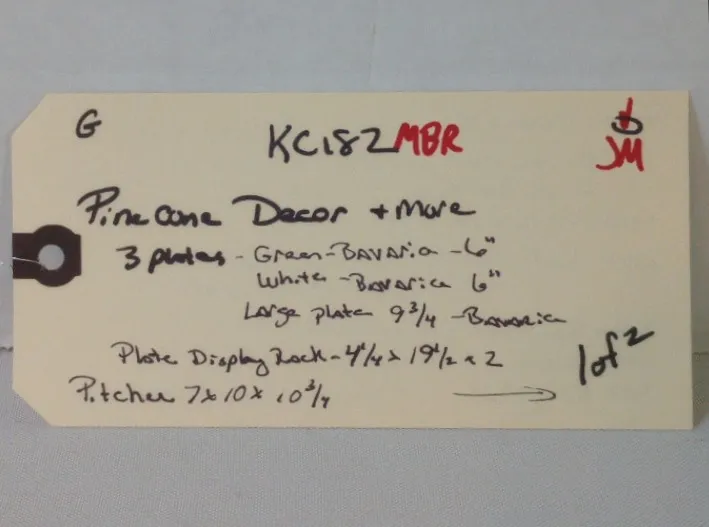 G
KC182 MBR
JM
Pine Cone Decor + More
3 plates - Green - BAVARIA - 6"
White - BAVARIA 6"
Large plate 9 3/4 - BAVARIA
Plate Display Rack - 4 1/4 x 19 1/2 x 2
Pitcher 7 x 10 x 10 3/4
1 of 2